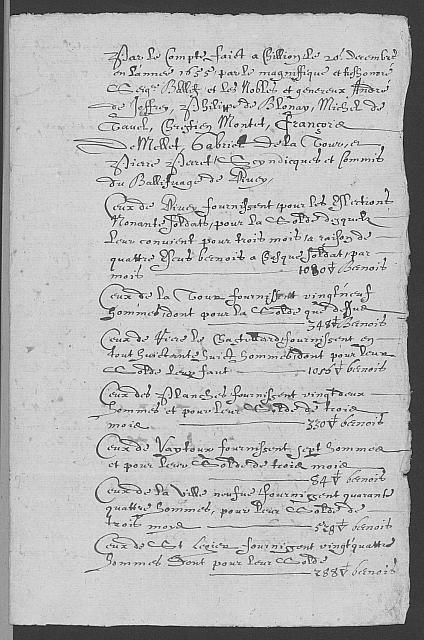 Par le Compte faict a Chillion le 20e decembre
en lannee 1635 par le magniffique et treshonnoré
Seigr Ballif et les Nobles et genereux André
de Joffrey, Philippe de Blonay, Michel de
Tavel, Chrestien Montet, François
De Mellet, Gabriel De la Tour, et
Pierre Peret Scyndicques et Commis
du Ballifvage de Vivey,
Ceux de Vivey fournissent, pour les Eslections
Nonante soldats, pour la Solde desquels
leur convient pour trois mois a raison de
quattre escus bernois a chesque soldat, par
mois 1080 bernois
Ceux de la Tour fournissent vingt neuf
hommes dont pour la Solde que dessus
348 bernois
Ceux de Pierre le Chastillard fournissent en
tout huictante huict hommes dont pour leur
Solde leur faut 1056 bernois
Ceux des Planches fournissent vingt deux
hommes et pour leur Solde de trois
mois 220 bernois
Ceux de Vaytoux fournissent sept hommes
et pour leur Solde de trois mois
84 bernois
Ceux de la ville neufve fournissent quarante
quattre hommes, pour leur Solde de
trois mois 528 bernois
Ceux de St Legier fournissent vingt quattre
hommes dont pour leur Solde
288 bernois